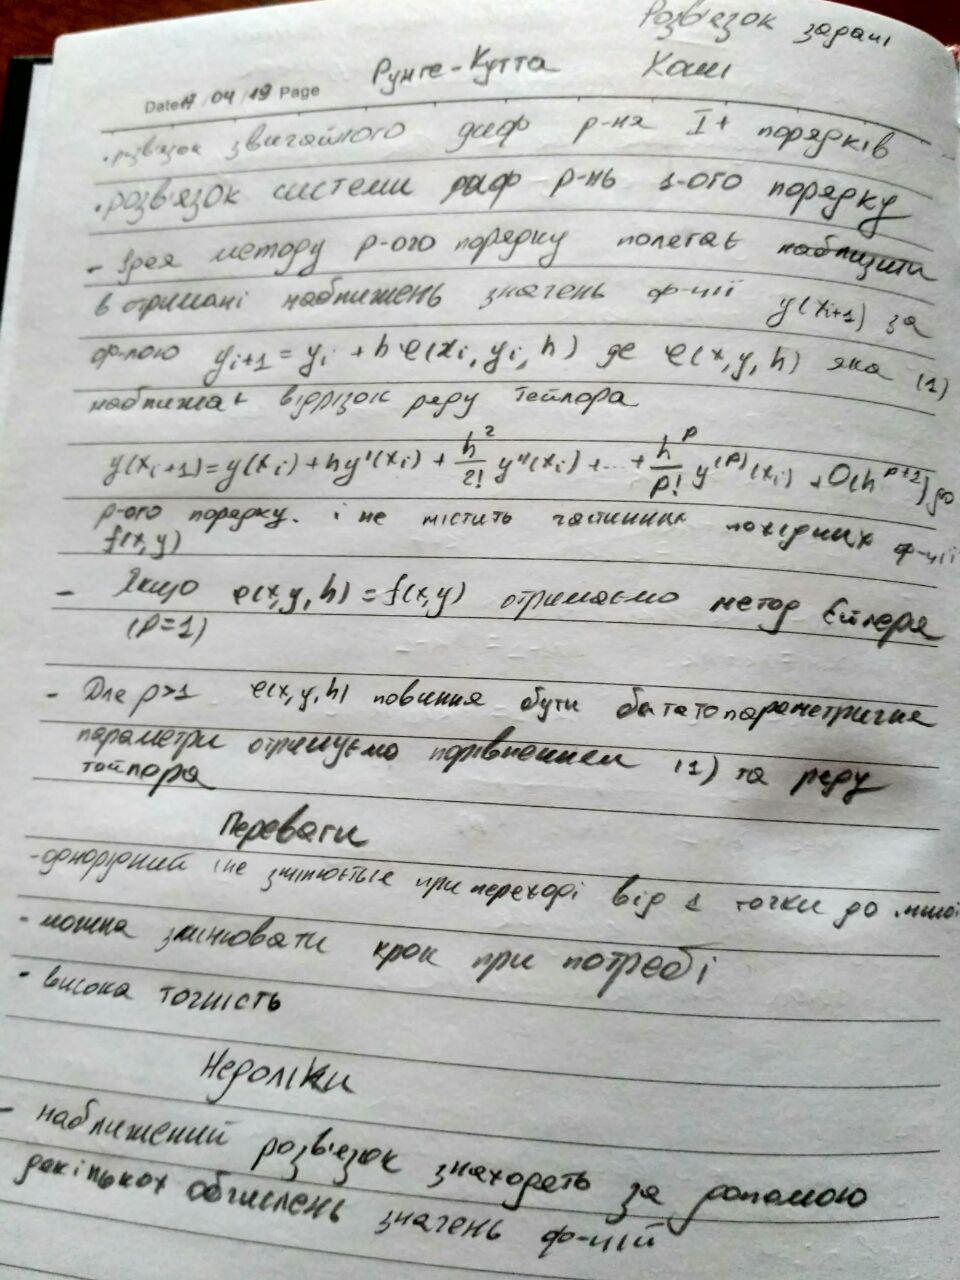 Розв'язок задачі
Date 17/04/19 Page Рунге-Кутта Коші
. розв'язок звичайного диф р-ня I+ порядків
. розв'язок системи диф р-нь 1-ого порядку
- Ідея методу p-ого порядку полягає наблизити
в отримані наближень значень ф-ції y(xi+1) за
ф-лою yi+1 = yi + h φ(xi, yi, h) де φ(x, y, h) яка (1)
наближає відрізок ряду Тейлора
y(xi+1) = y(xi) + hy'(xi) + h²/2! y''(xi) + ... + h^p/p! y^(p)(xi) + O(h^p+1) до
p-ого порядку. і не містить частинних похідних ф-ції
f(x, y)
- Якщо φ(x, y, h) = f(x, y) отримаємо метод Ейлера
(p=1)
- Для p>1 φ(x, y, h) повинна бути багатопараметрична
параметри отримуємо порівнянням (1) та ряду
Тейлора
Переваги
- однорідний і не змінюється при переході від 1 точки до іншої
- можна змінювати крок при потребі
- висока точність
Недоліки
- наближений розв'язок знаходять за допомою
декількох обчислень значень ф-цій